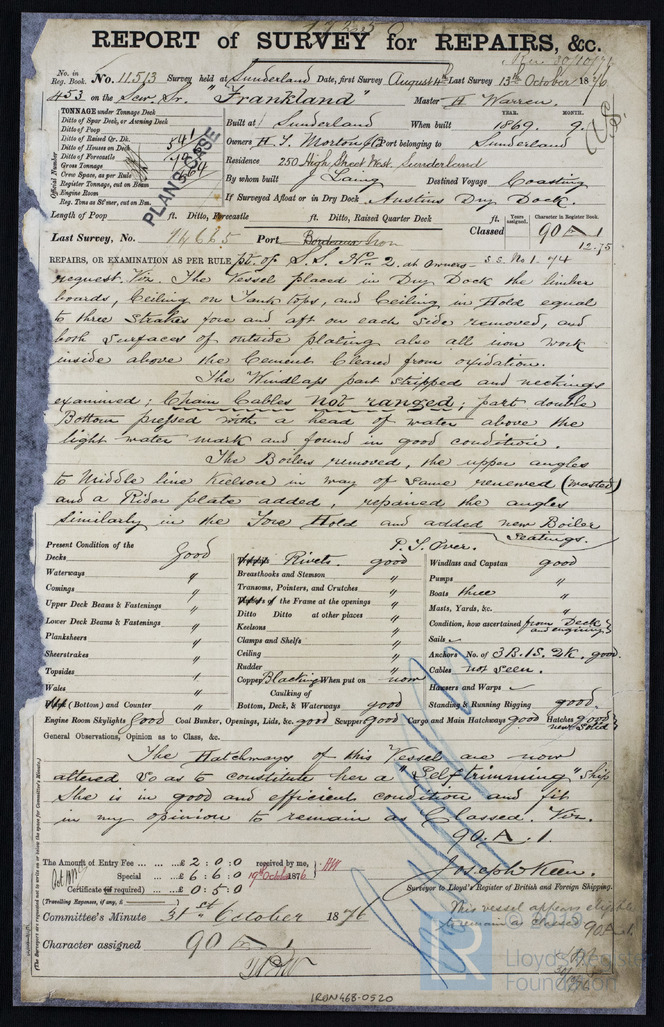 REPORT of SURVEY for REPAIRS, &c.
No. in Reg. Book. No. 11513 Survey held at Sunderland Date, first Survey August 4th Last Survey 13th October 1876
453 on the Scw. Sr. "Frankland" Master H. Warren.
TONNAGE under Tonnage Deck
Ditto of Spar Deck, or Awning Deck
Ditto of Poop
Ditto of Raised Qr. Dk.
Ditto of Houses on Deck
Ditto of Forecastle
Gross Tonnage
Crew Space, as per Rule
Register Tonnage, cut on Beam
Engine Room
Reg. Tons as Stmer, cut on Bm.
Official Number
541
564
PLANS CASE
YEAR. MONTH.
Built at Sunderland When built 1869. 9.
Owners H. T. Morton & Co Port belonging to Sunderland
Residence 250 High Street West. Sunderland
By whom built J Laing Destined Voyage Coasting
If Surveyed Afloat or in Dry Dock. Austins Dry Dock.
Length of Poop ft. Ditto, Forecastle ft. Ditto, Raised Quarter Deck ft.
Years assigned. Character in Register Book.
Last Survey, No. 14665 Port Bordeaux Iron Classed 90 A 1
12.75
REPAIRS, OR EXAMINATION AS PER RULE pt. of S.S. No. 2. at Owners S.S. No 1. 74
request. Viz. The Vessel placed in Dry Dock the limber
boards, Ceiling on Tank tops, and Ceiling in Hold equal
to three strakes fore and aft on each side removed, and
both surfaces of outside plating also all iron work
inside above the Cement Cleared from oxidation.
The Windlass part stripped and neckings
examined; Chain Cables not ranged; part double
Bottom pressed with a head of water above the
light water mark and found in good condition.
The Boilers removed, the upper angles
to Middle line Keelson in way of same renewed (wasted)
and a Rider plate added, repaired the angles
similarly in the Fore Hold and added new Boiler
Seatings.
P. T. Over.
Present Condition of the
Decks good
Waterways "
Comings "
Upper Deck Beams & Fastenings "
Lower Deck Beams & Fastenings "
Planksheers "
Sheerstrakes "
Topsides "
Wales "
(Bottom) and Counter "
Rivets. good
Breasthooks and Stemson "
Transoms, Pointers, and Crutches "
of the Frame at the openings "
Ditto Ditto at other places "
Keelsons "
Clamps and Shelfs "
Ceiling "
Rudder "
Copper Blacking When put on now
Caulking of
Bottom, Deck, & Waterways good
Windlass and Capstan good
Pumps "
Boats three "
Masts, Yards, &c. "
Condition, how ascertained from Deck and enquiry
Sails
Anchors No. of 3 B. 1 S. 2 K. good
Cables not seen.
Hawsers and Warps
Standing & Running Rigging good.
Engine Room Skylights good Coal Bunker, Openings, Lids, &c. good Scupper good Cargo and Main Hatchways good Hatches good
new & solid
General Observations, Opinion as to Class, &c.
The Hatchways of this Vessel are now
altered so as to constitute her a "Self trimming" Ship
She is in good and efficient condition and fit
in my opinion to remain as Classed. Viz.
90. A. 1.
The Amount of Entry Fee £ 2 : 0 : 0 received by me,
Special £ 6 : 6 : 0 19th October 1876
Certificate (if required) £ 0 : 5 : 0
(Travelling Expenses, if any, £
Joseph Keen.
Surveyor to Lloyd's Register of British and Foreign Shipping.
Committee's Minute 31st October 1876
Character assigned 90 A 1
This vessel appears eligible
to remain as classed 90 A 1.
© 2019
LR
Lloyd's Register
Foundation
IRON468-0520